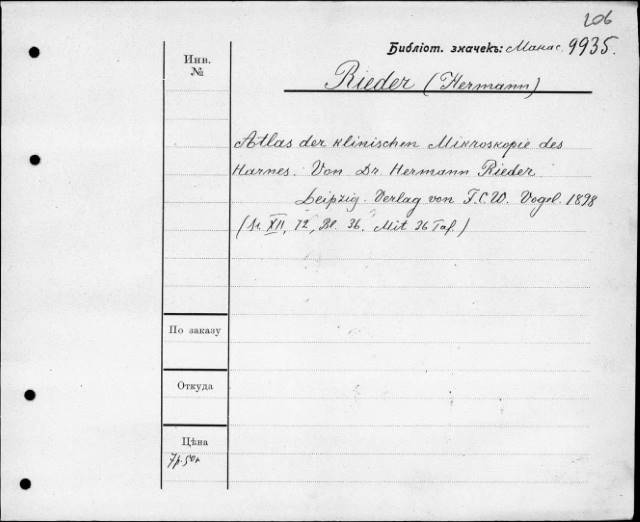 206
Библіот. значекъ: Манас. 9935.
Инв.
№
Rieder (Hermann)
Atlas der klinischen Mikroskopie des
Harnes. Von Dr. Hermann Rieder
Leipzig. Verlag von F.C.W. Vogel. 1898
(Sr. XII, 72, Bl. 36. Mit 36 Taf.)
По заказу
Откуда
Цѣна
7р. 50к